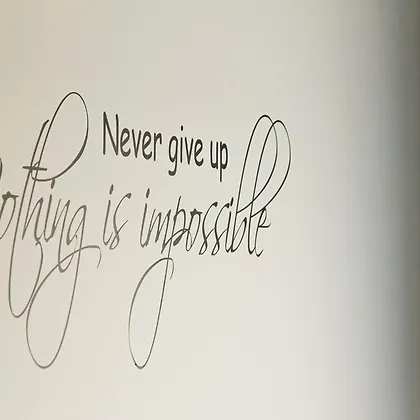 Never give up
othing is impossible